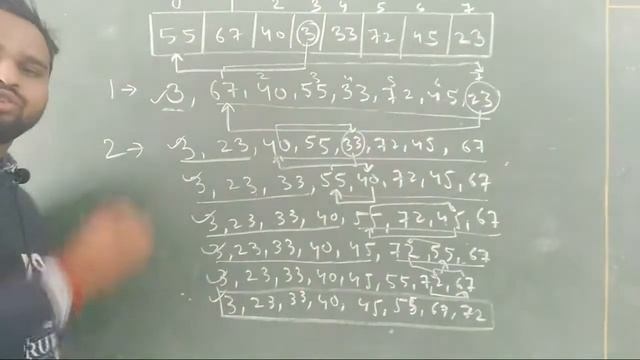 0 1 2 3 4 5 6 7
55 67 40 3 33 72 45 23
1→ 3, 67, 40, 55, 33, 72, 45, 23
2→ 3, 23, 40, 55, 33, 72, 45, 67
3, 23, 33, 55, 40, 72, 45, 67
3, 23, 33, 40, 55, 72, 45, 67
3, 23, 33, 40, 45, 72, 55, 67
3, 23, 33, 40, 45, 55, 72, 67
3, 23, 33, 40, 45, 55, 67, 72
RU